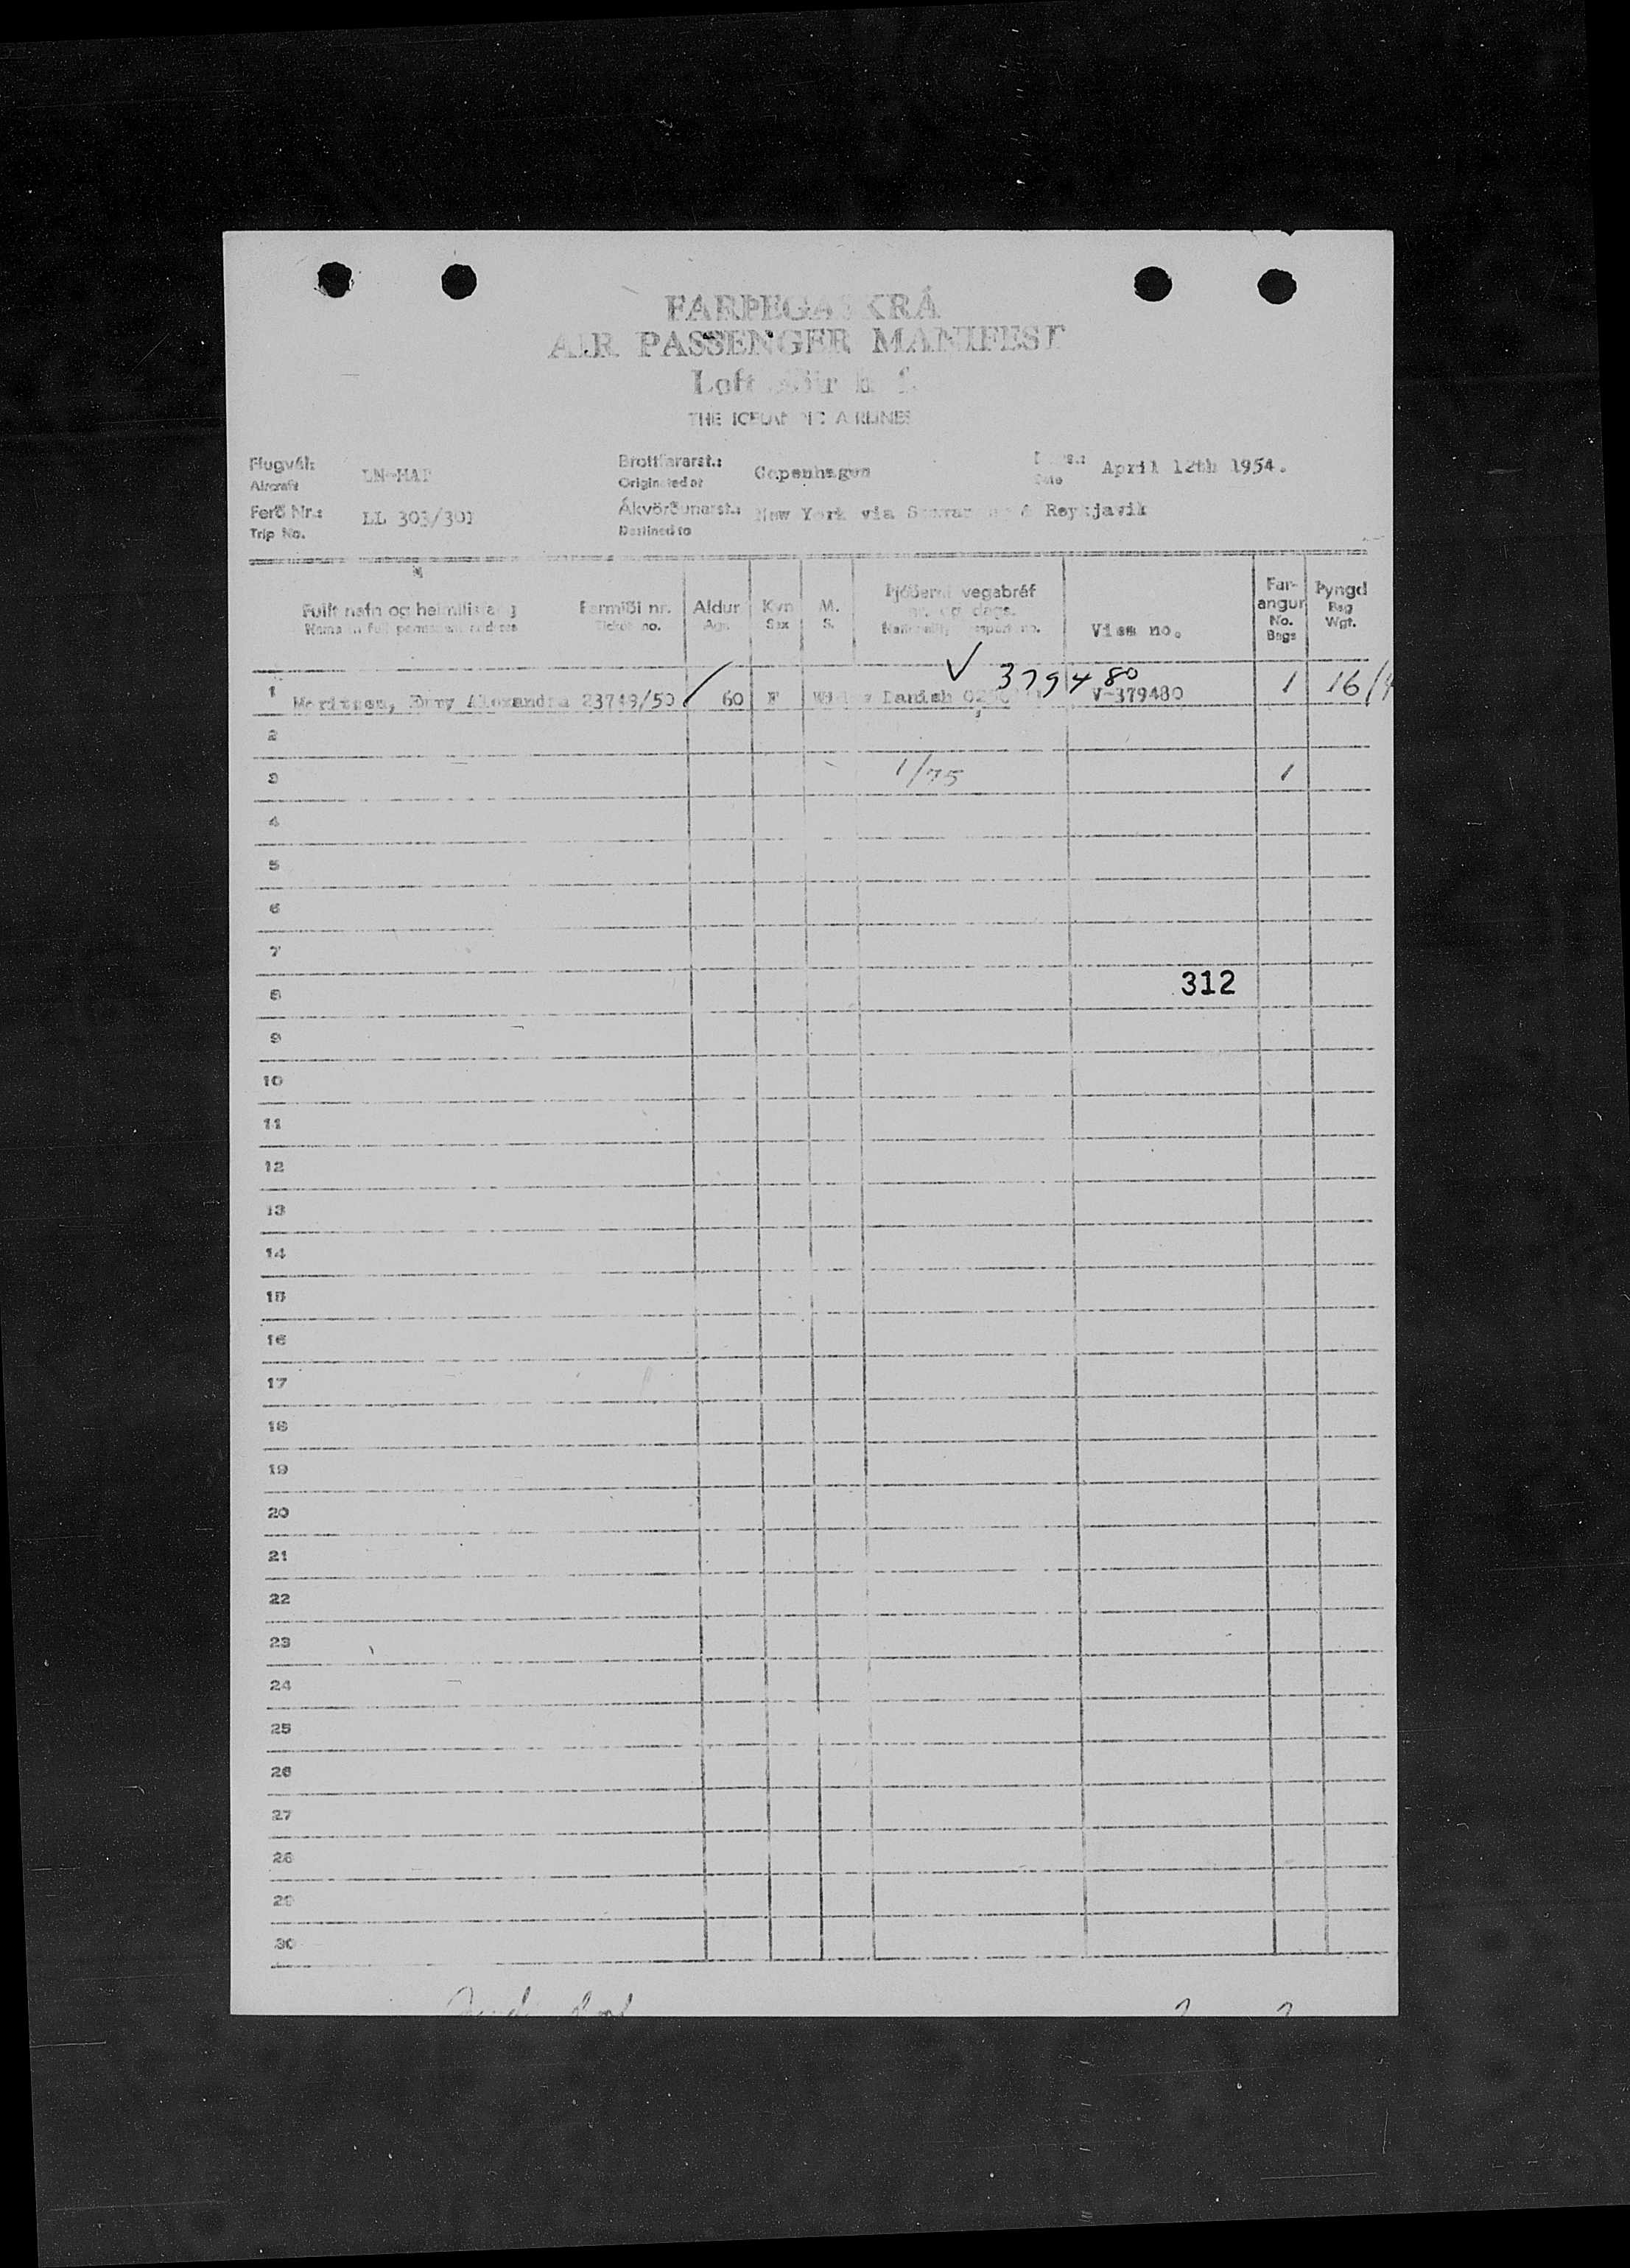 FARÞEGASKRÁ
AIR PASSENGER MANIFEST
Loftleiðir h.f.
THE ICELANDIC AIRLINES
Flugvél: LN-HAP Brottfararst.: Copenhagen Dags.: April 12th 1954.
Aircraft Originated at Date
Ferð Nr.: LL 303/301 Ákvörðunarst.: New York via & Reykjavik
Trip No. Destined to
Fullt nafn og heimilisfang Farmiði nr. Aldur Kyn M. Þjóðerni vegabréf Far- Þyngd
Name in full permanent address Ticket no. Age Sex S. nr. og dags. angur Bag
Nationality passport no. Visa no. No. Wgt.
Bags
✓ 379480
1 Moritsen, Alexandra 23749/50 / 60 F Danish V-379480 1 16/
2
3 1/75 1
4
5
6
7
8 312
9
10
11
12
13
14
15
16
17
18
19
20
21
22
23
24
25
26
27
28
29
30